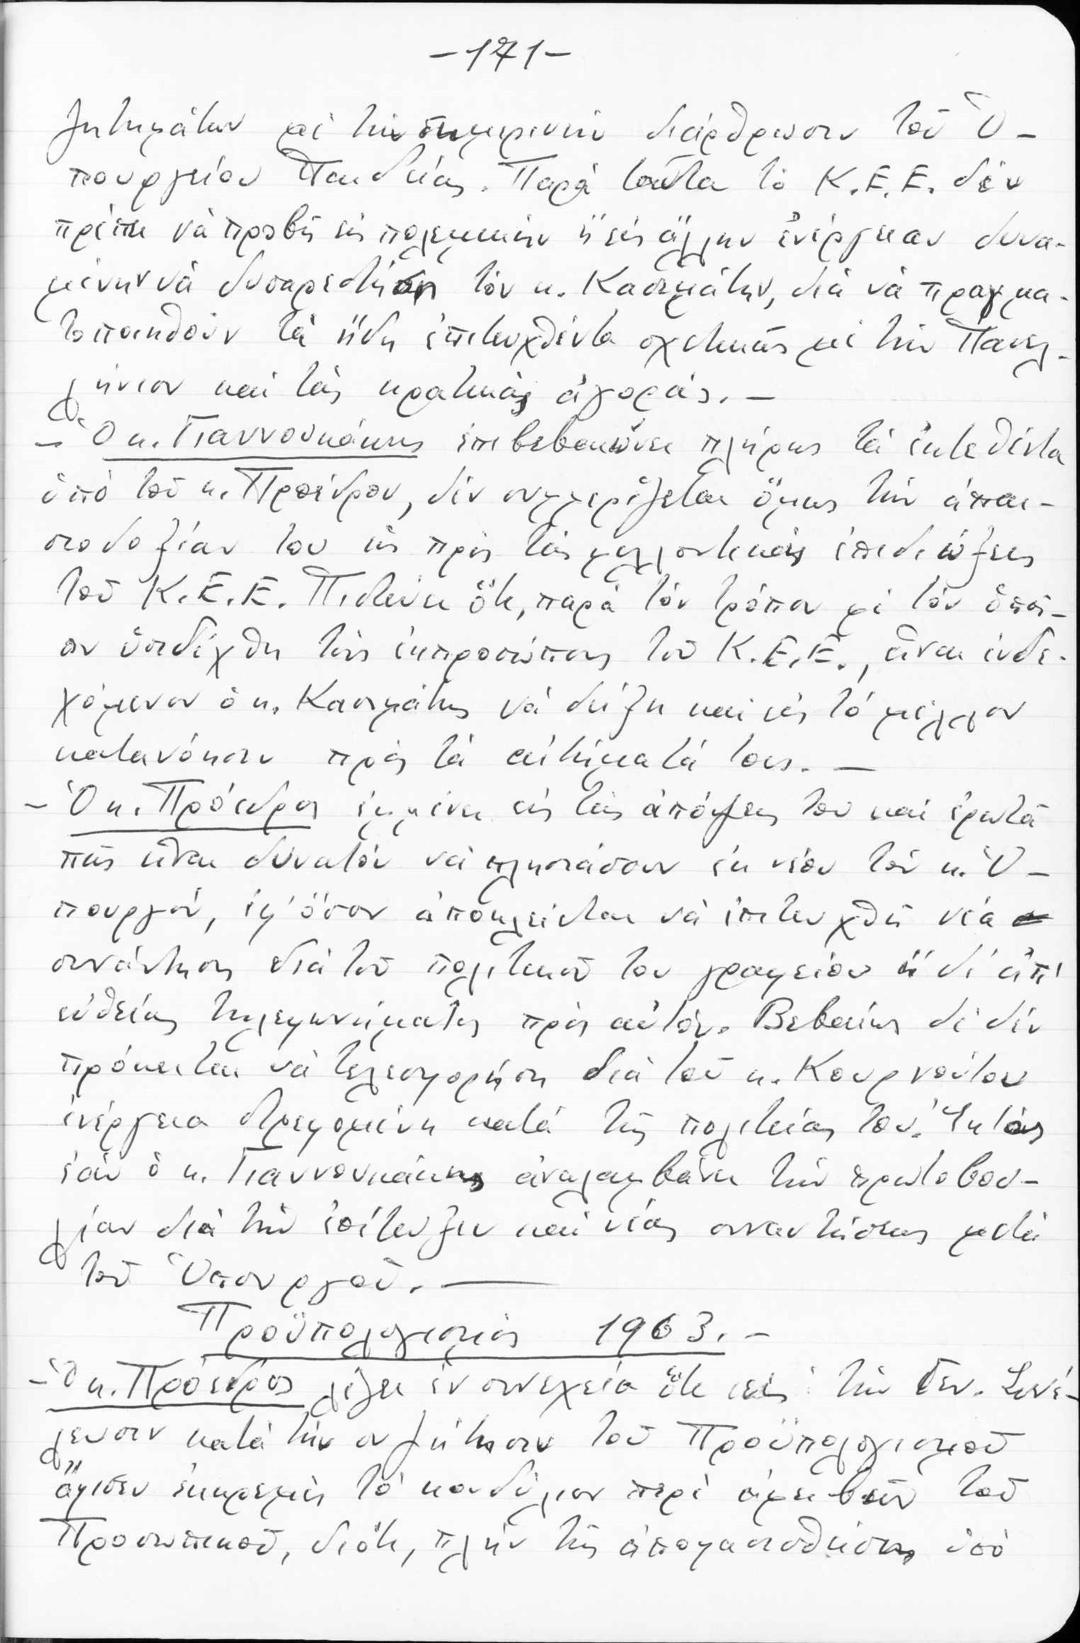 -171-
ζητημάτων μὲ τὴν σημερινὴν διάρθρωσιν τοῦ Ὑ-
πουργείου Παιδείας. Παρὰ ταῦτα τὸ Κ.Ε.Ε. δὲν
πρέπει νὰ προβῇ εἰς πολεμικὴν ἢ εἰς ἄλλην ἐνέργειαν δυνα-
μένην νὰ δυσαρεστήσῃ τὸν κ. Κασιμάτην, διὰ νὰ πραγμα-
τοποιηθοῦν τὰ ἤδη ἐπιτευχθέντα σχετικῶς μὲ τὴν Πανελ-
λήνιον καὶ τὰς κρατικὰς ἀγοράς.-
- Ὁ κ. Γιαννουκάκης ἐπιβεβαιώνει πλήρως τὰ ἐκτεθέντα
ὑπὸ τοῦ κ. Προέδρου, δὲν συμμερίζεται ὅμως τὴν ἀπαι-
σιοδοξίαν του ὡς πρὸς τὰς μελλοντικὰς ἐπιδιώξεις
τοῦ Κ.Ε.Ε. Πιστεύει ὅτι, παρὰ τὸν τρόπον μὲ τὸν ὁποῖ-
ον ὑπεδέχθη τοὺς ἐκπροσώπους τοῦ Κ.Ε.Ε., εἶναι ἐνδε-
χόμενον ὁ κ. Κασιμάτης νὰ δείξῃ καὶ εἰς τὸ μέλλον
κατανόησιν πρὸς τὰ αἰτήματά τους.-
- Ὁ κ. Πρόεδρος ἐμμένει εἰς τὰς ἀπόψεις του καὶ ἐρωτᾶ
πῶς εἶναι δυνατὸν νὰ πλησιάσουν ἐκ νέου τὸν κ. Ὑ-
πουργόν, ἐφ' ὅσον ἀποκλείεται νὰ ἐπιτευχθῇ νέα
συνάντησις διὰ τοῦ πολιτικοῦ του γραφείου ἢ δι' ἀπ'
εὐθείας τηλεφωνήματος πρὸς αὐτόν. Βεβαίως δὲ δὲν
πρόκειται νὰ τελεσφορήσῃ διὰ τοῦ κ. Κουρνούτου
ἐνέργεια στρεφομένη κατὰ τῆς πολιτείας του. Ἐκτὸς
ἐὰν ὁ κ. Γιαννουκάκης ἀναλαμβάνει τὴν πρωτοβου-
λίαν διὰ τὴν ἐπίτευξιν καὶ νέας συναντήσεως μετὰ
τοῦ Ὑπουργοῦ.-
Προϋπολογισμὸς 1963.-
- Ὁ κ. Πρόεδρος λέγει ἐν συνεχείᾳ ὅτι εἰς τὴν Γεν. Συνέ-
λευσιν κατὰ τὴν συζήτησιν τοῦ Προϋπολογισμοῦ
ἄφισεν ἐκκρεμὲς τὸ κονδύλιον περὶ ἀμοιβῶν τοῦ
Προσωπικοῦ, διότι, πλὴν τῆς ἀποφασισθείσης ὑπὸ